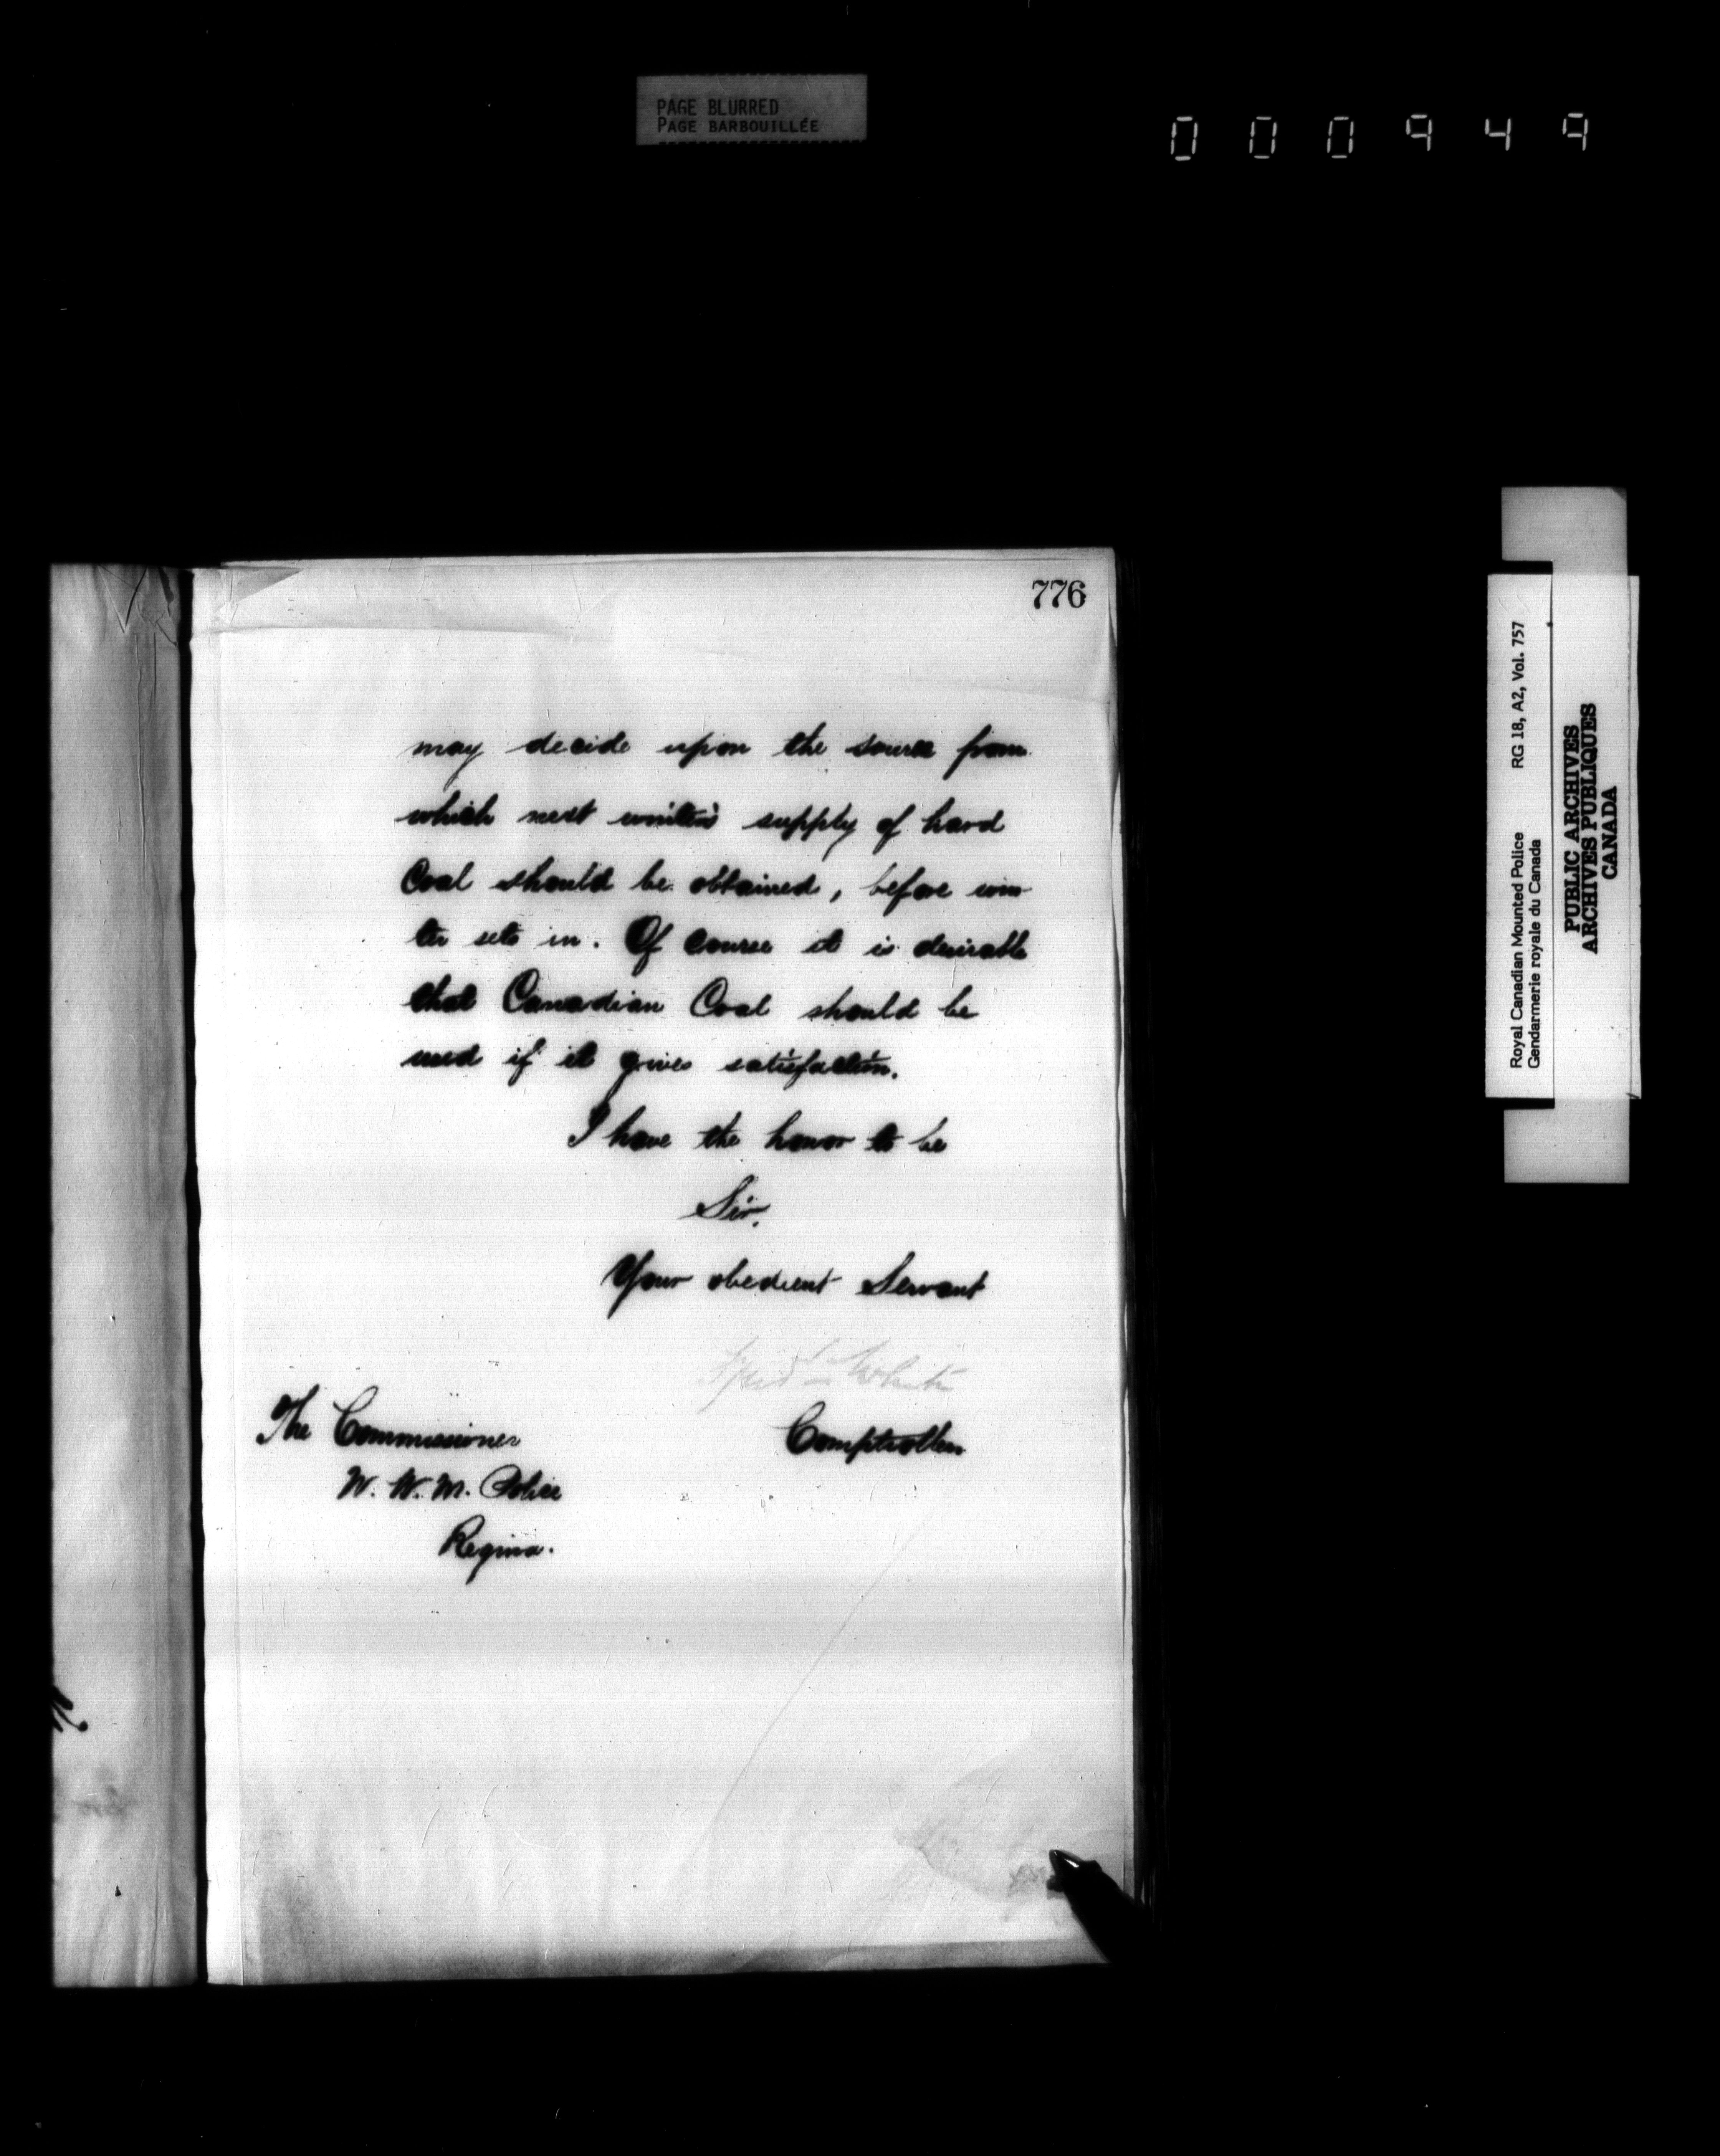 PAGE BLURRED
PAGE BARBOUILLÉE
000949
776
may decide upon the source from
which next winter's supply of hard
Coal should be obtained, before win-
ter sets in. Of course it is desirable
that Canadian Coal should be
used if it gives satisfaction.
I have the honor to be
Sir,
Your obedient Servant
White
Comptroller
The Commissioner
N. W. M. Police
Regina.
Royal Canadian Mounted Police RG 18, A2, Vol. 757
Gendarmerie royale du Canada
PUBLIC ARCHIVES
ARCHIVES PUBLIQUES
CANADA